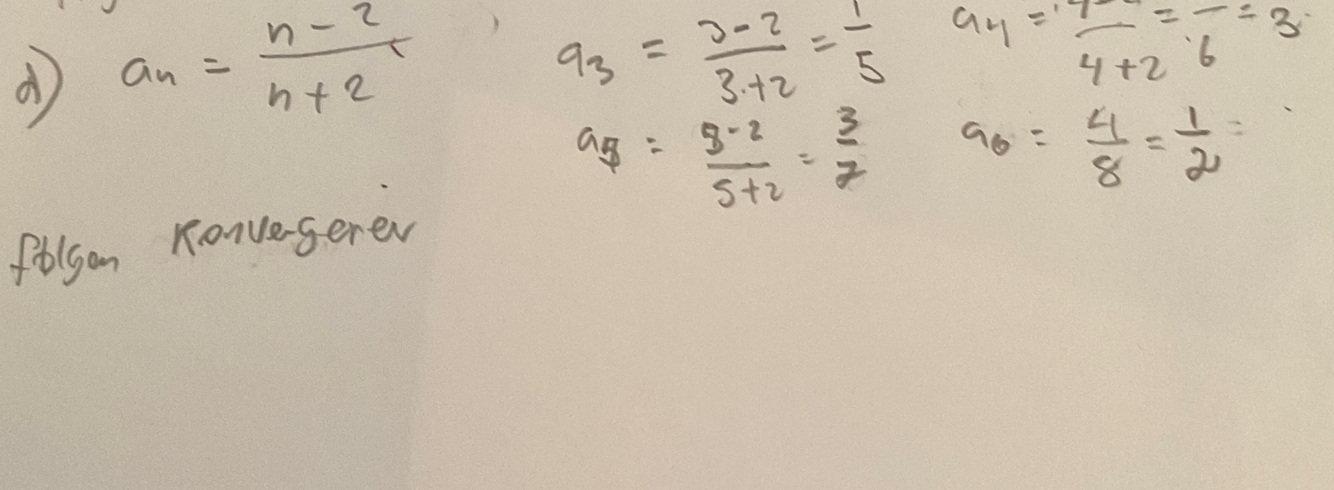 d) an = n - 2 / n + 2
a3 = 3 - 2 / 3 + 2 = 1 / 5
a4 = / 4 + 2 = / 6 = 3
a5 = 5 - 2 / 5 + 2 = 3 / 7
a6 = 4 / 8 = 1 / 2 =
följan konvergerer